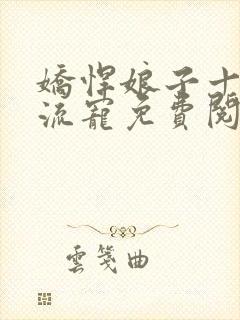 嬌悍娘子十
流寵免費閱
雲箋曲